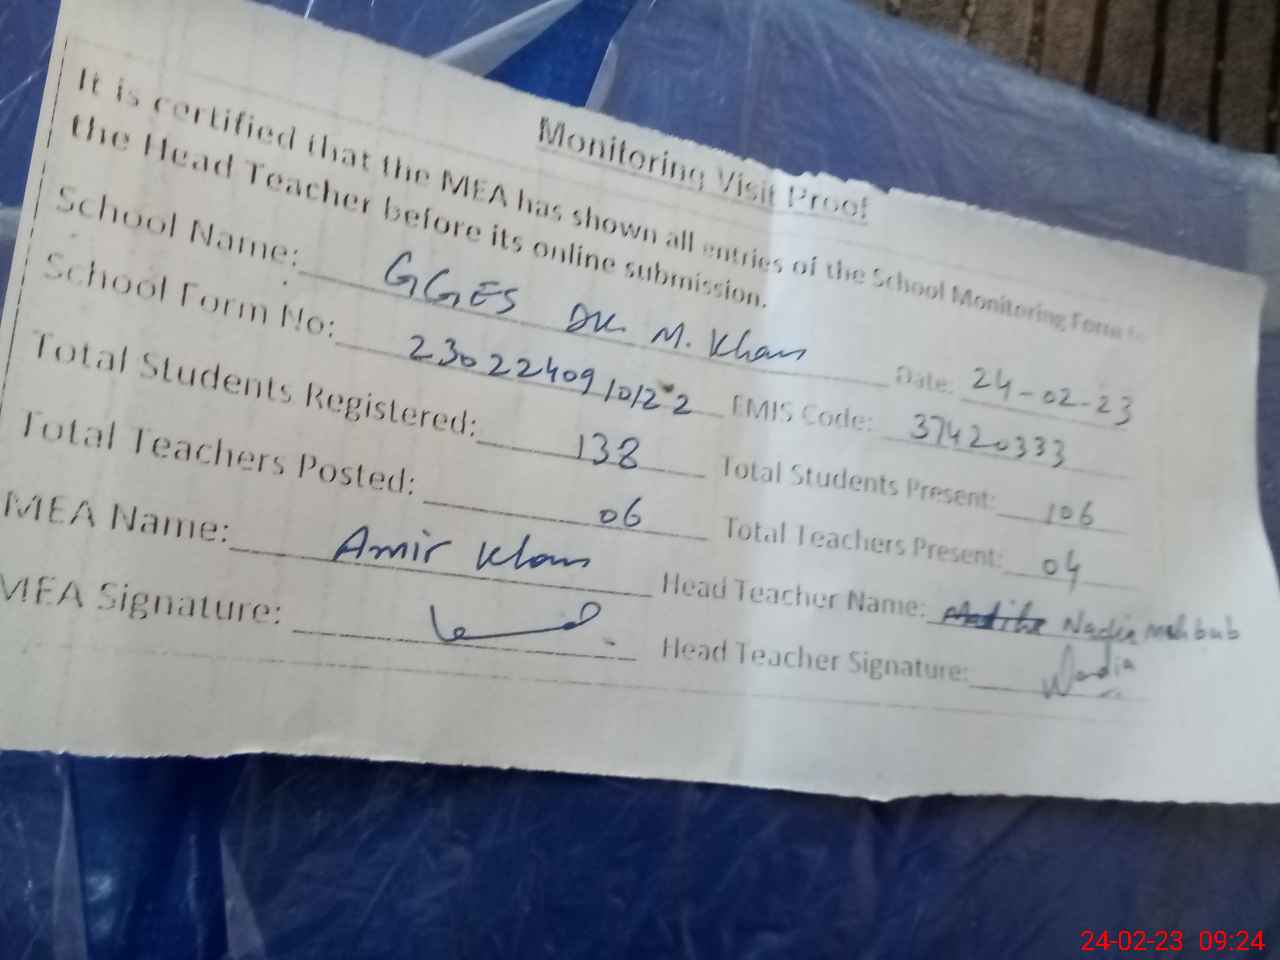 Monitoring Visit Proof
It is certified that the MEA has shown all entries of the School Monitoring Form to
the Head Teacher before its online submission.
School Name: GGES DK. M. Khan Date: 24-02-23
School Form No: 230224091012 2 EMIS Code: 37420333
Total Students Registered: 138 Total Students Present: 106
Total Teachers Posted: 06 Total Teachers Present: 04
MEA Name: Amir Khan Head Teacher Name: Nadia mehbub
MEA Signature: Head Teacher Signature: Nadia
24-02-23 09:24